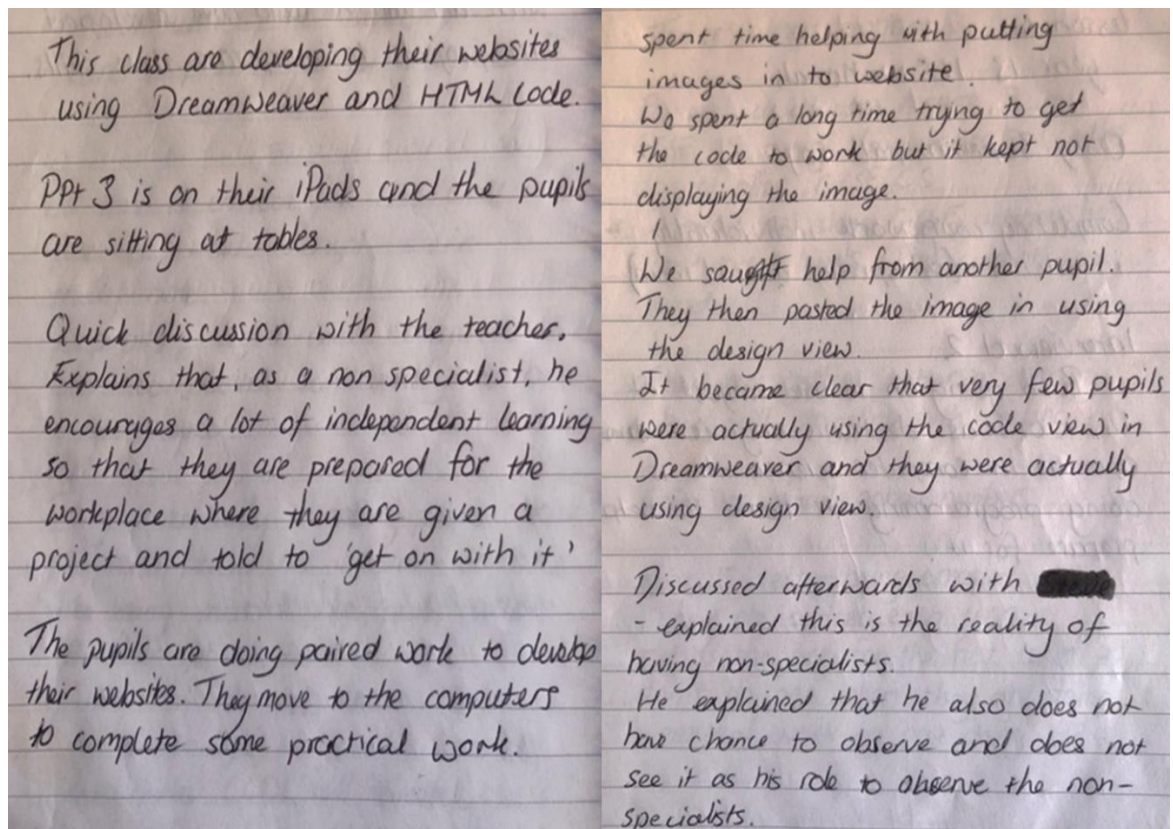 This class are developing their websites
using Dreamweaver and HTML code.
PPt 3 is on their iPads and the pupils
are sitting at tables.
Quick discussion with the teacher.
Explains that, as a non specialist, he
encourages a lot of independent learning
so that they are prepared for the
workplace where they are given a
project and told to 'get on with it'
The pupils are doing paired work to develop
their websites. They move to the computers
to complete some practical work.
spent time helping with putting
images in to website.
We spent a long time trying to get
the code to work but it kept not
displaying the image.
We saught help from another pupil.
They then pasted the image in using
the design view.
It became clear that very few pupils
were actually using the code view in
Dreamweaver and they were actually
using design view.
Discussed afterwards with
- explained this is the reality of
having non-specialists.
He explained that he also does not
have chance to observe and does not
see it as his role to observe the non-
specialists.